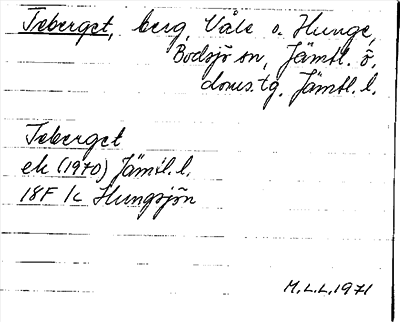 Teberget, berg, Våle o. Hunge,
Bodsjö sn, Jämtl. ö.
doms.tg. Jämtl. l.
Teberget
ek (1970) Jämtl. l.
18F 1c Hungsjön
M.L.L. 1971